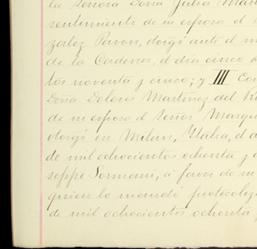 la Señora Doña Julia Mart
sentimiento de su esposo el
zalez Pavon, otorgó ante el n
de la Cardenas, el dia cinco d
tos noventa y cinco; y III Co
Doña Dolores Martinez del
de su esposo el Señor Marqu
otorgó en Milan, Italia, el d
de mil ochocientos ochenta y
seppe Sormani, á favor de
quiere lo mandó protocolo
de mil ochocientos ochenta y